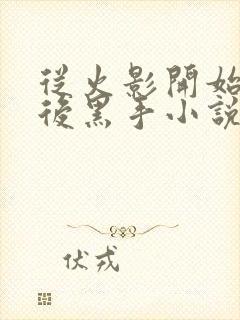 從火影開始
後黑手小說
伏戎